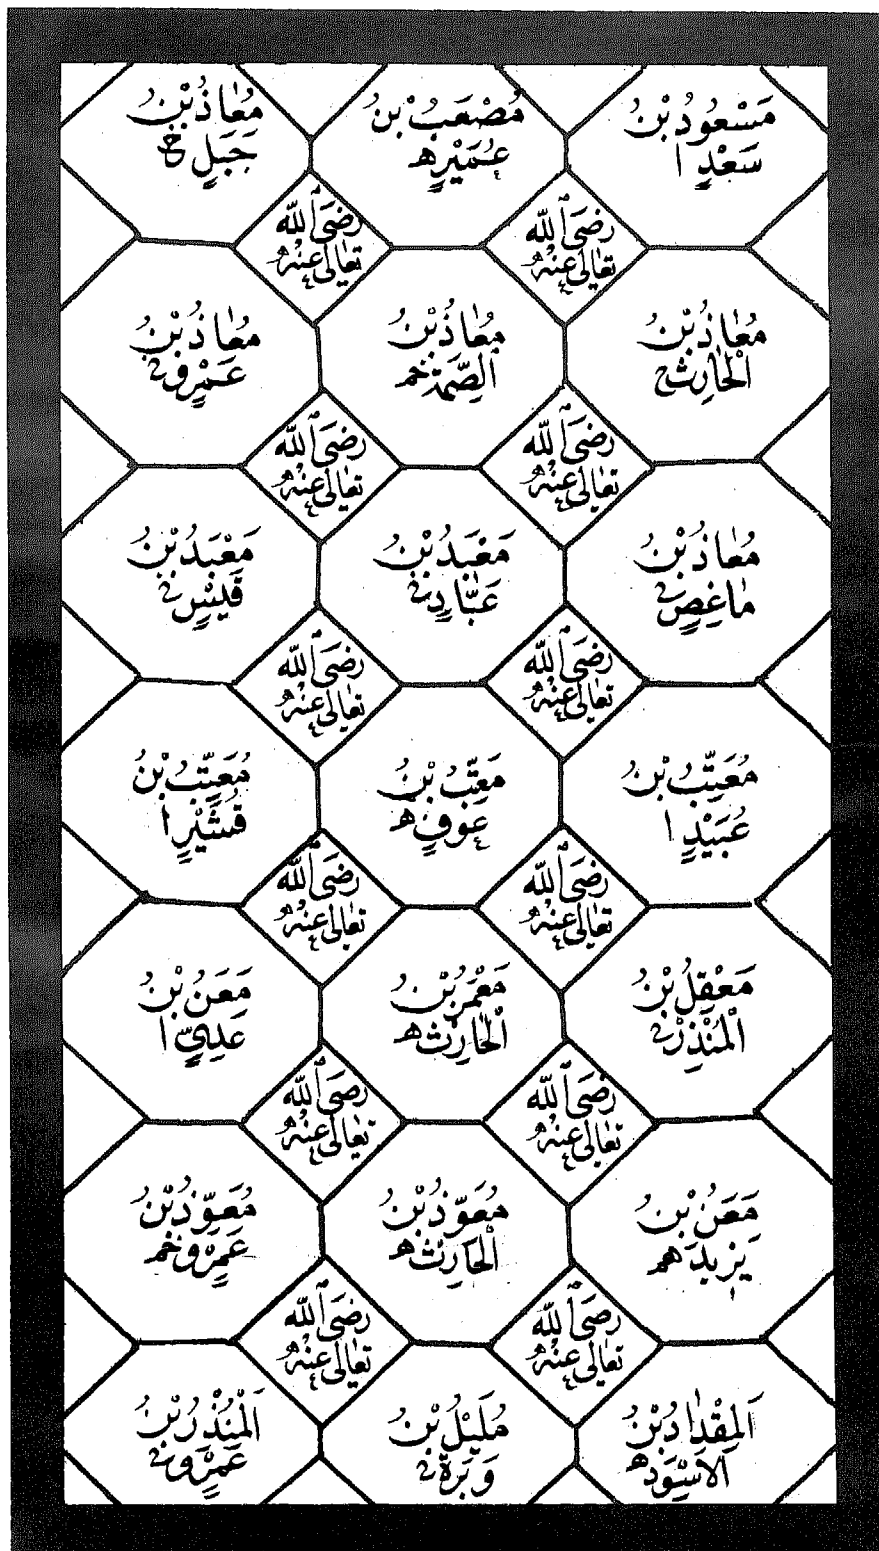 مَسْعُودُ بْنُ
سَعْدٍ ا
مُصْعَبُ بْنُ
عُمَيْرٍ هـ
مُعَاذُ بْنُ
جَبَلٍ خ
رَضِيَ اللّٰه
تَعَالٰى عَنْهُ
رَضِيَ اللّٰه
تَعَالٰى عَنْهُ
مُعَاذُ بْنُ
الْحَارِثِ خ
مُعَاذُ بْنُ
الصِّمَّةِ خم
مُعَاذُ بْنُ
عَمْرٍو
رَضِيَ اللّٰه
تَعَالٰى عَنْهُ
رَضِيَ اللّٰه
تَعَالٰى عَنْهُ
مُعَاذُ بْنُ
مَاعِصٍ
مَعْبَدُ بْنُ
عَبَّادٍ
مَعْبَدُ بْنُ
قَيْسٍ
رَضِيَ اللّٰه
تَعَالٰى عَنْهُ
رَضِيَ اللّٰه
تَعَالٰى عَنْهُ
مُعَتِّبُ بْنُ
عُبَيْدٍ ا
مُعَتِّبُ بْنُ
عَوْفٍ هـ
مُعَتِّبُ بْنُ
قُشَيْرٍ ا
رَضِيَ اللّٰه
تَعَالٰى عَنْهُ
رَضِيَ اللّٰه
تَعَالٰى عَنْهُ
مَعْقِلُ بْنُ
الْمُنْذِرِ
مَعْمَرُ بْنُ
الْحَارِثِ هـ
مَعَنُ بْنُ
عَدِيٍّ ا
رَضِيَ اللّٰه
تَعَالٰى عَنْهُ
رَضِيَ اللّٰه
تَعَالٰى عَنْهُ
مَعَنُ بْنُ
يَزِيدَ هم
مُعَوِّذُ بْنُ
الْحَارِثِ هـ
مُعَوِّذُ بْنُ
عَمْرٍو خم
رَضِيَ اللّٰه
تَعَالٰى عَنْهُ
رَضِيَ اللّٰه
تَعَالٰى عَنْهُ
الْمِقْدَادُ بْنُ
الْاَسْوَدِ هـ
مُلَيْلُ بْنُ
وَبَرَةَ
الْمُنْذِرُ بْنُ
عَمْرٍو